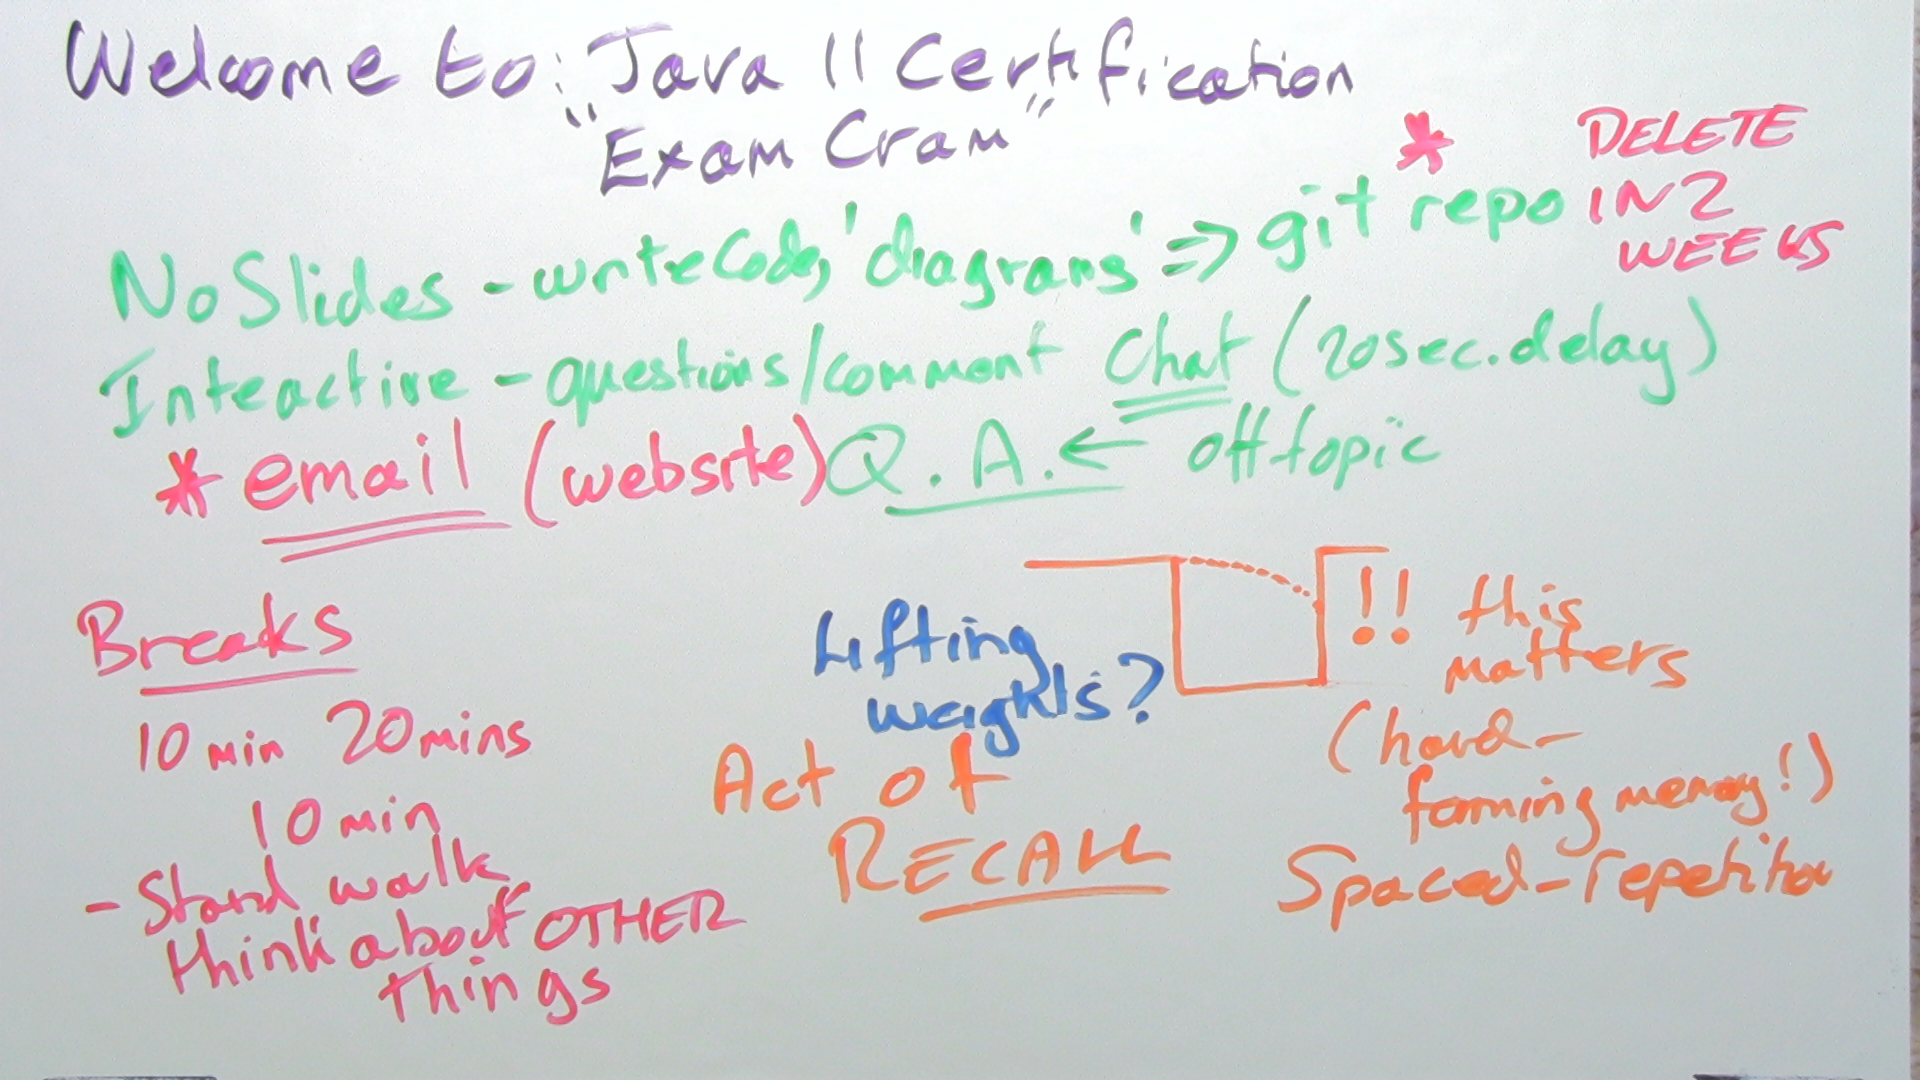 Welcome to: Java 11 Certification
"Exam Cram"
* DELETE
IN 2
WEEKS
No Slides - write Code, 'diagrams' => git repo
Inteactive - questions/comment Chat (20sec. delay)
* email (website) Q. A. ← off topic
Breaks
10 min 20 mins
10 min
- Stand walk
think about OTHER
things
Lifting
weights?
Act of
RECALL
!! this
matters
(hard -
forming memory!)
Spaced-repetition